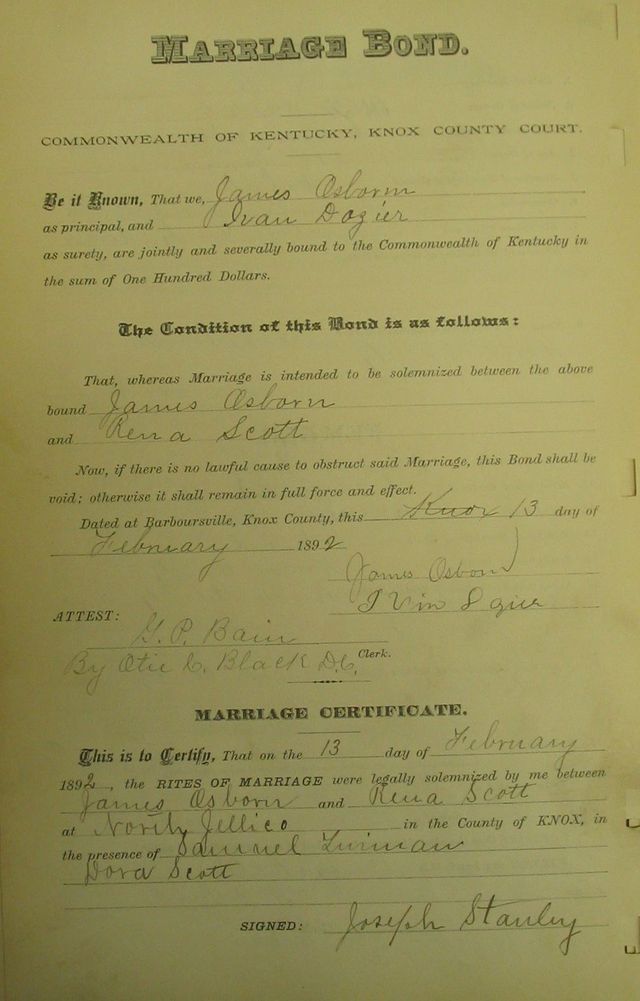 MARRIAGE BOND.
COMMONWEALTH OF KENTUCKY, KNOX COUNTY COURT.
Be it Known, That we, James Osborn
as principal, and Ivan Dozier
as surety, are jointly and severally bound to the Commonwealth of Kentucky in
the sum of One Hundred Dollars.
The Condition of this Bond is as follows:
That, whereas Marriage is intended to be solemnized between the above
bound James Osborn
and Rena Scott
Now, if there is no lawful cause to obstruct said Marriage, this Bond shall be
void; otherwise it shall remain in full force and effect.
Dated at Barboursville, Knox County, this Knox 13 day of
February 1892
James Osborn
ATTEST:
G. P. Bain
By Otie C. Black D.C. Clerk.
MARRIAGE CERTIFICATE.
This is to Certify, That on the 13 day of February
1892, the RITES OF MARRIAGE were legally solemnized by me between
James Osborn and Rena Scott
at North Jellico in the County of KNOX, in
the presence of Samuel
Dora Scott
SIGNED: Joseph Stanley